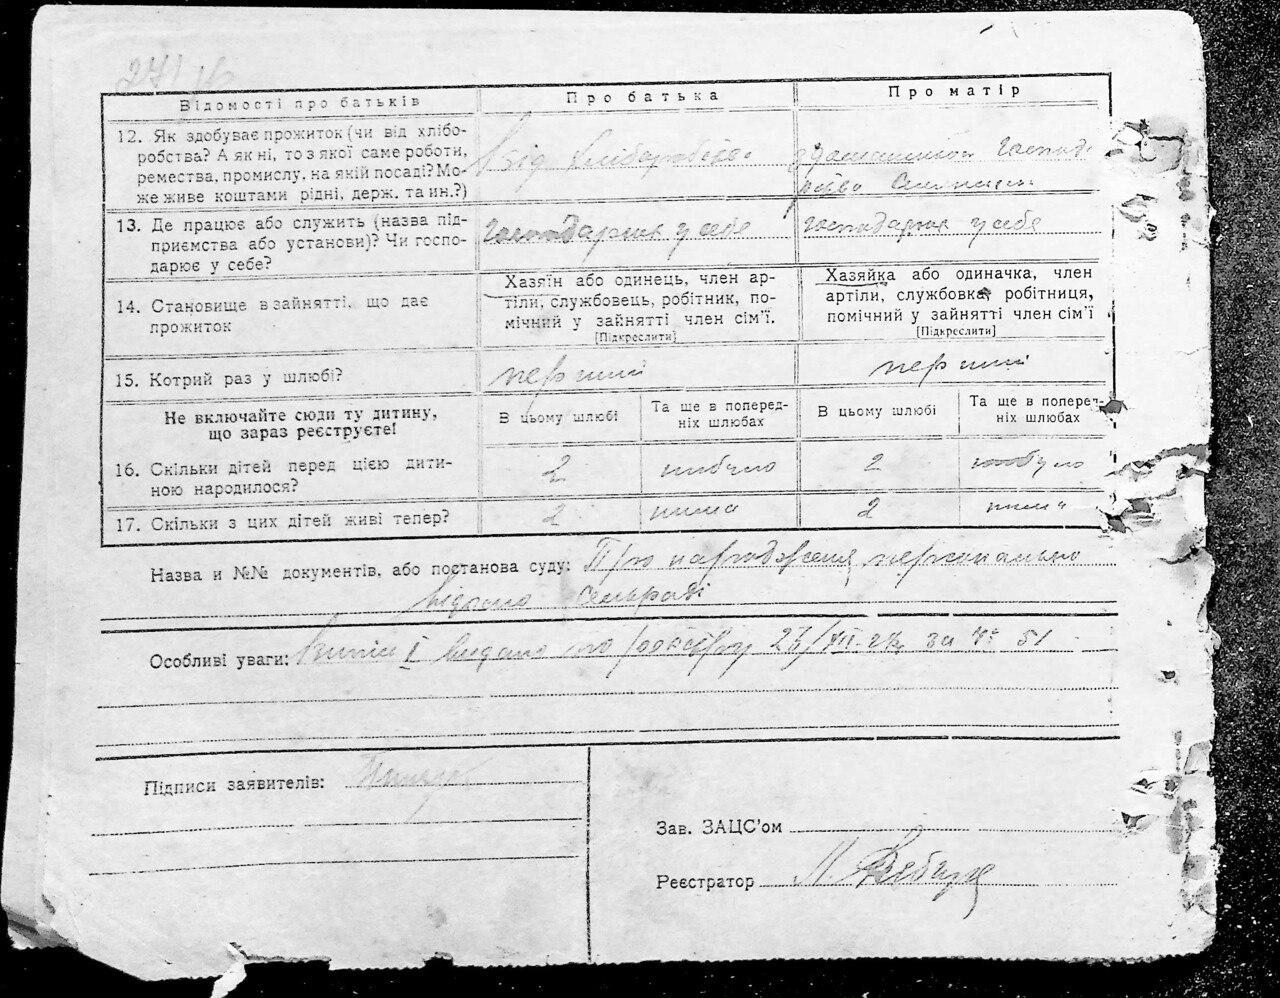 27/16
Відомості про батьків
Про батька
Про матір
12. Як здобуває прожиток (чи від хлібо-
робства? А як ні, то з якої саме роботи,
ремества, промислу, на якій посаді? Мо-
же живе коштами рідні, держ. та ин.?)
Від хліборобства
з домашньої господ
13. Де працює або служить (назва під-
приємства або установи)? Чи госпо-
дарює у себе?
господарник у себе
господарник у себе
14. Становище в зайнятті, що дає
прожиток
Хазяїн або одинець, член ар-
тіли, службовець, робітник, по-
мічний у зайнятті член сім'ї.
[Підкреслити]
Хазяйка або одиначка, член
артіли, службовка, робітниця,
помічний у зайнятті член сім'ї
[Підкреслити]
15. Котрий раз у шлюбі?
перший
перший
Не включайте сюди ту дитину,
що зараз реєструєте!
В цьому шлюбі
Та ще в поперед-
ніх шлюбах
В цьому шлюбі
Та ще в поперед-
ніх шлюбах
16. Скільки дітей перед цією дити-
ною народилося?
2
небуло
2
небуло
17. Скільки з цих дітей живі тепер?
2
нима
2
нима
Назва и №№ документів, або постанова суду: Про народження персонально
відомо сельраді
Особливі уваги: I видано по реєстру 27/XII-27 за № 51
Підписи заявителів:
Зав. ЗАЦС'ом
Реєстратор